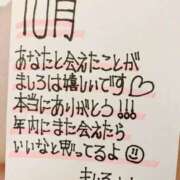 10月
あなたと会えたことが
ましろは嬉しいです♡
本当にありがとう!!!
年内にまた会えたら
いいなと思ってるよ☺
ましろ